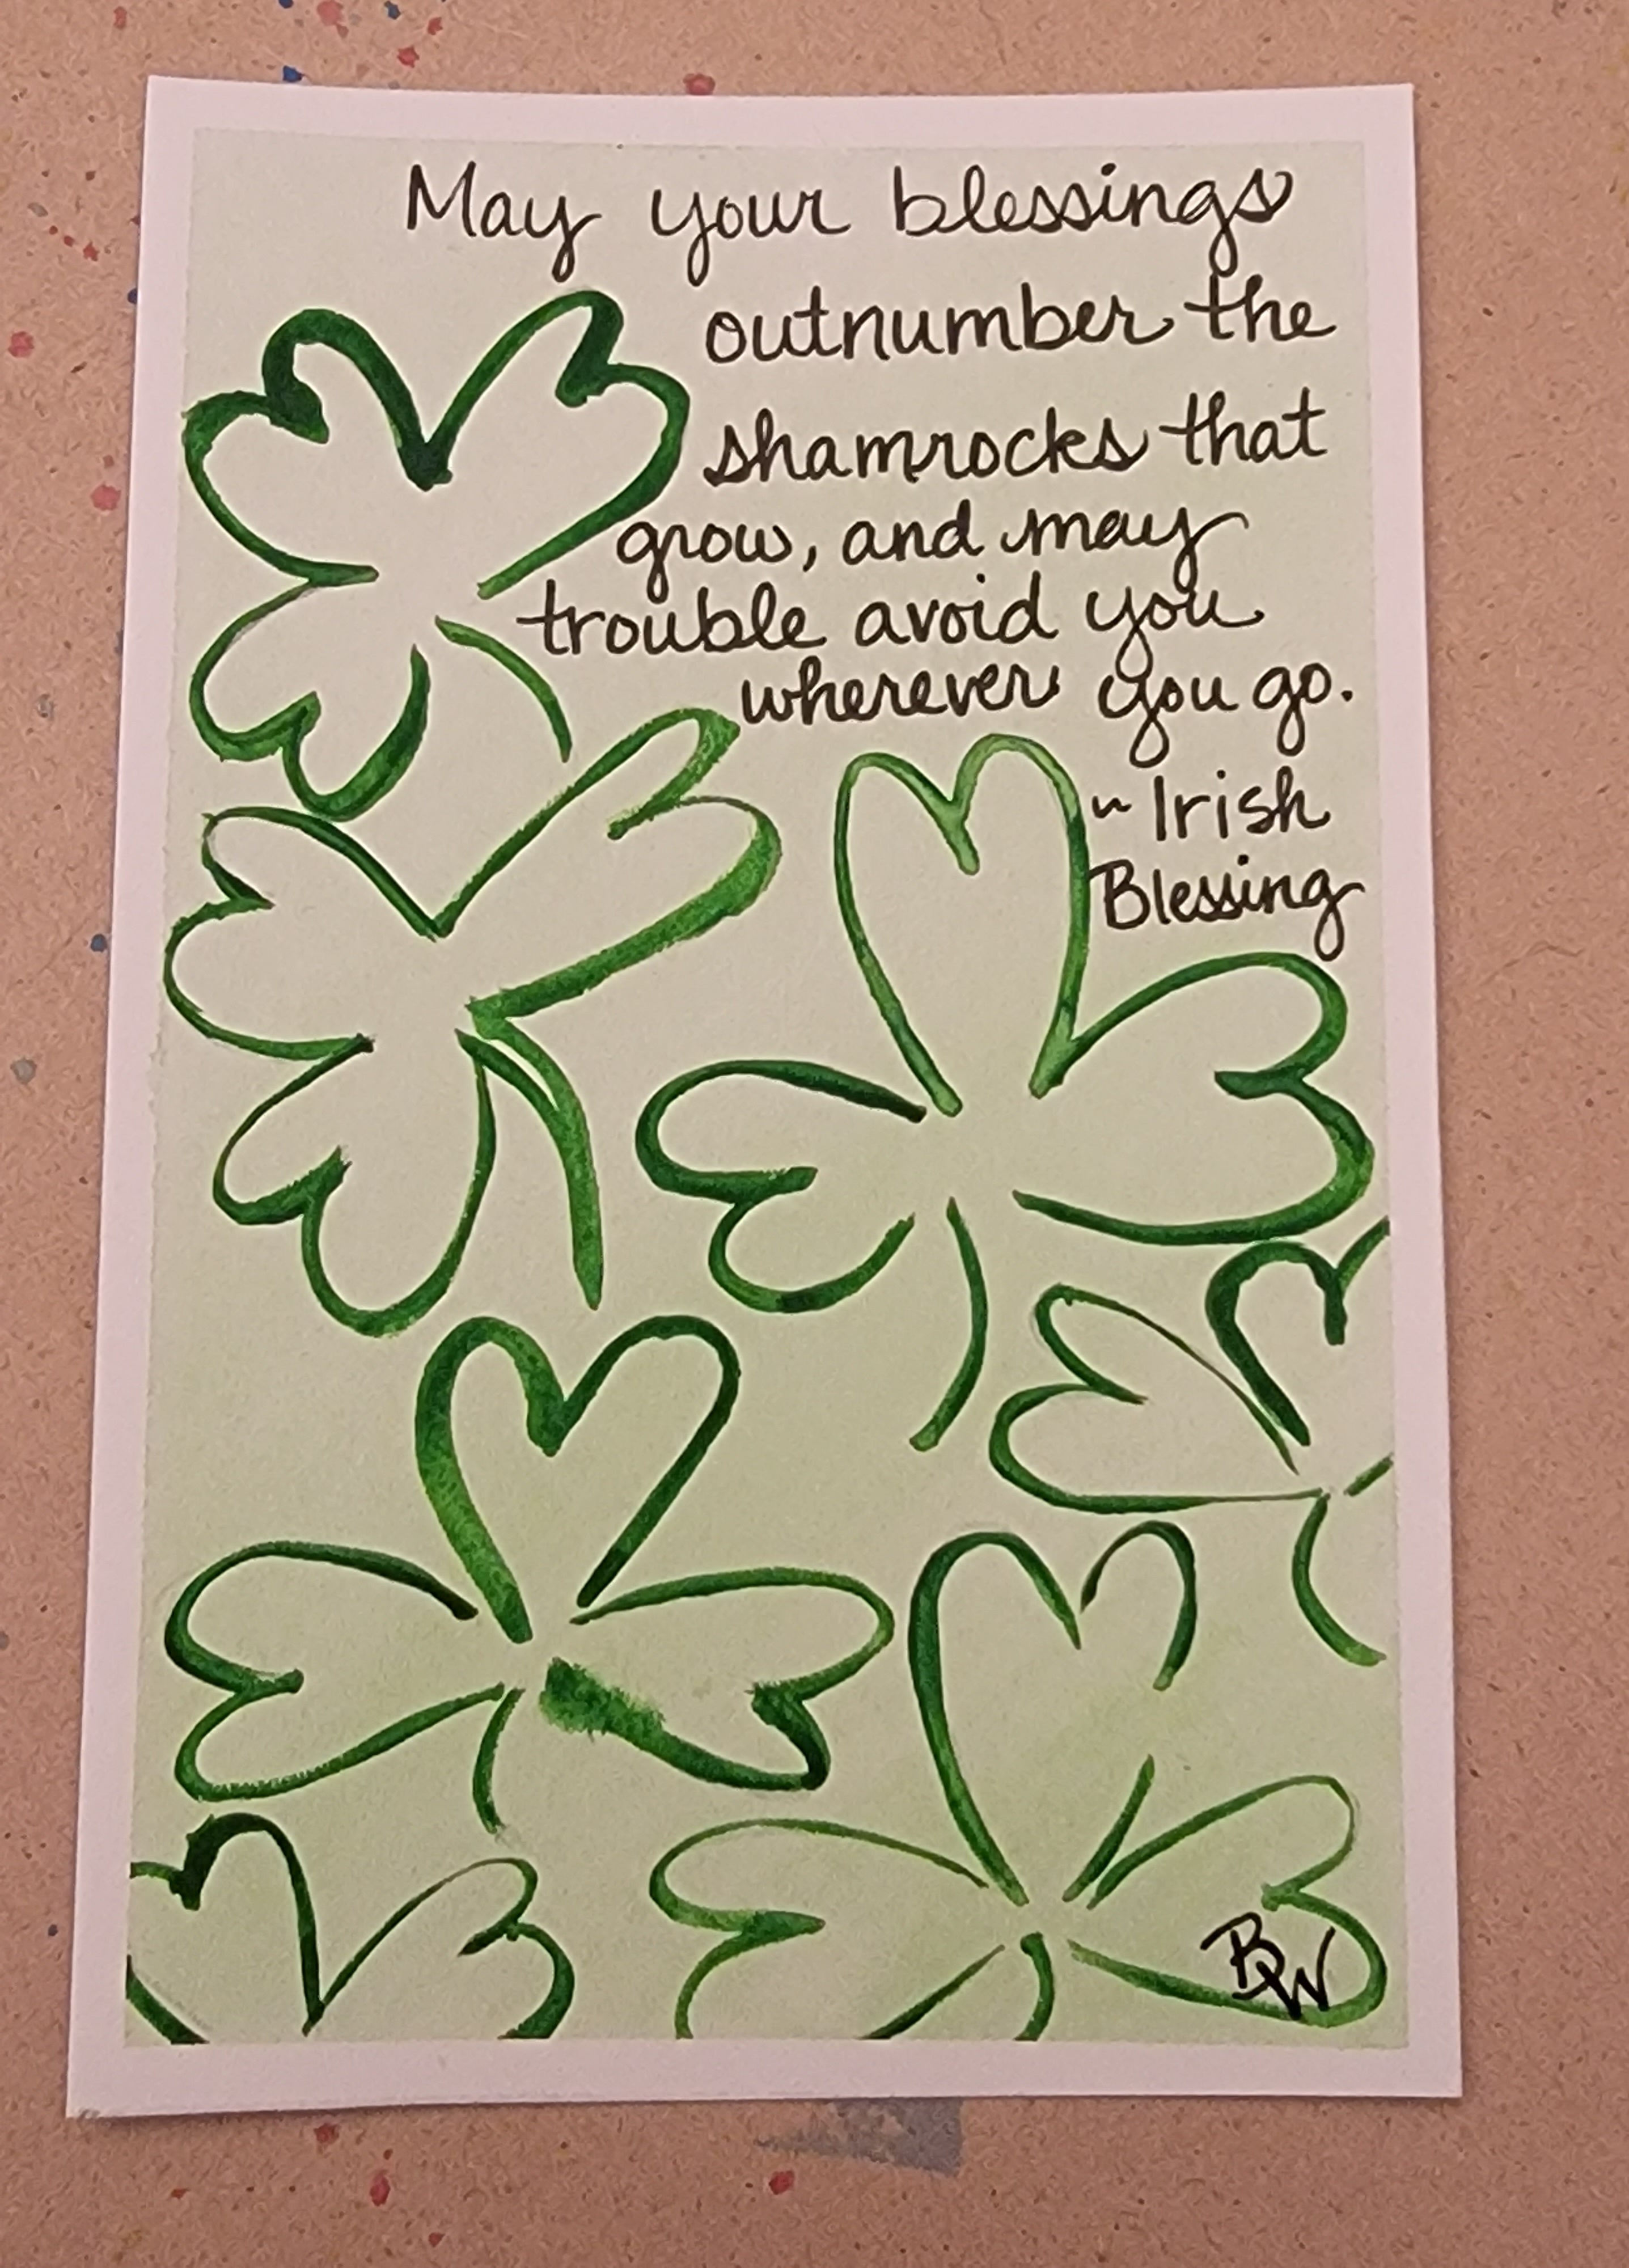 May your blessings
outnumber the
shamrocks that
grow, and may
trouble avoid you
wherever you go.
~ Irish
Blessing
BW